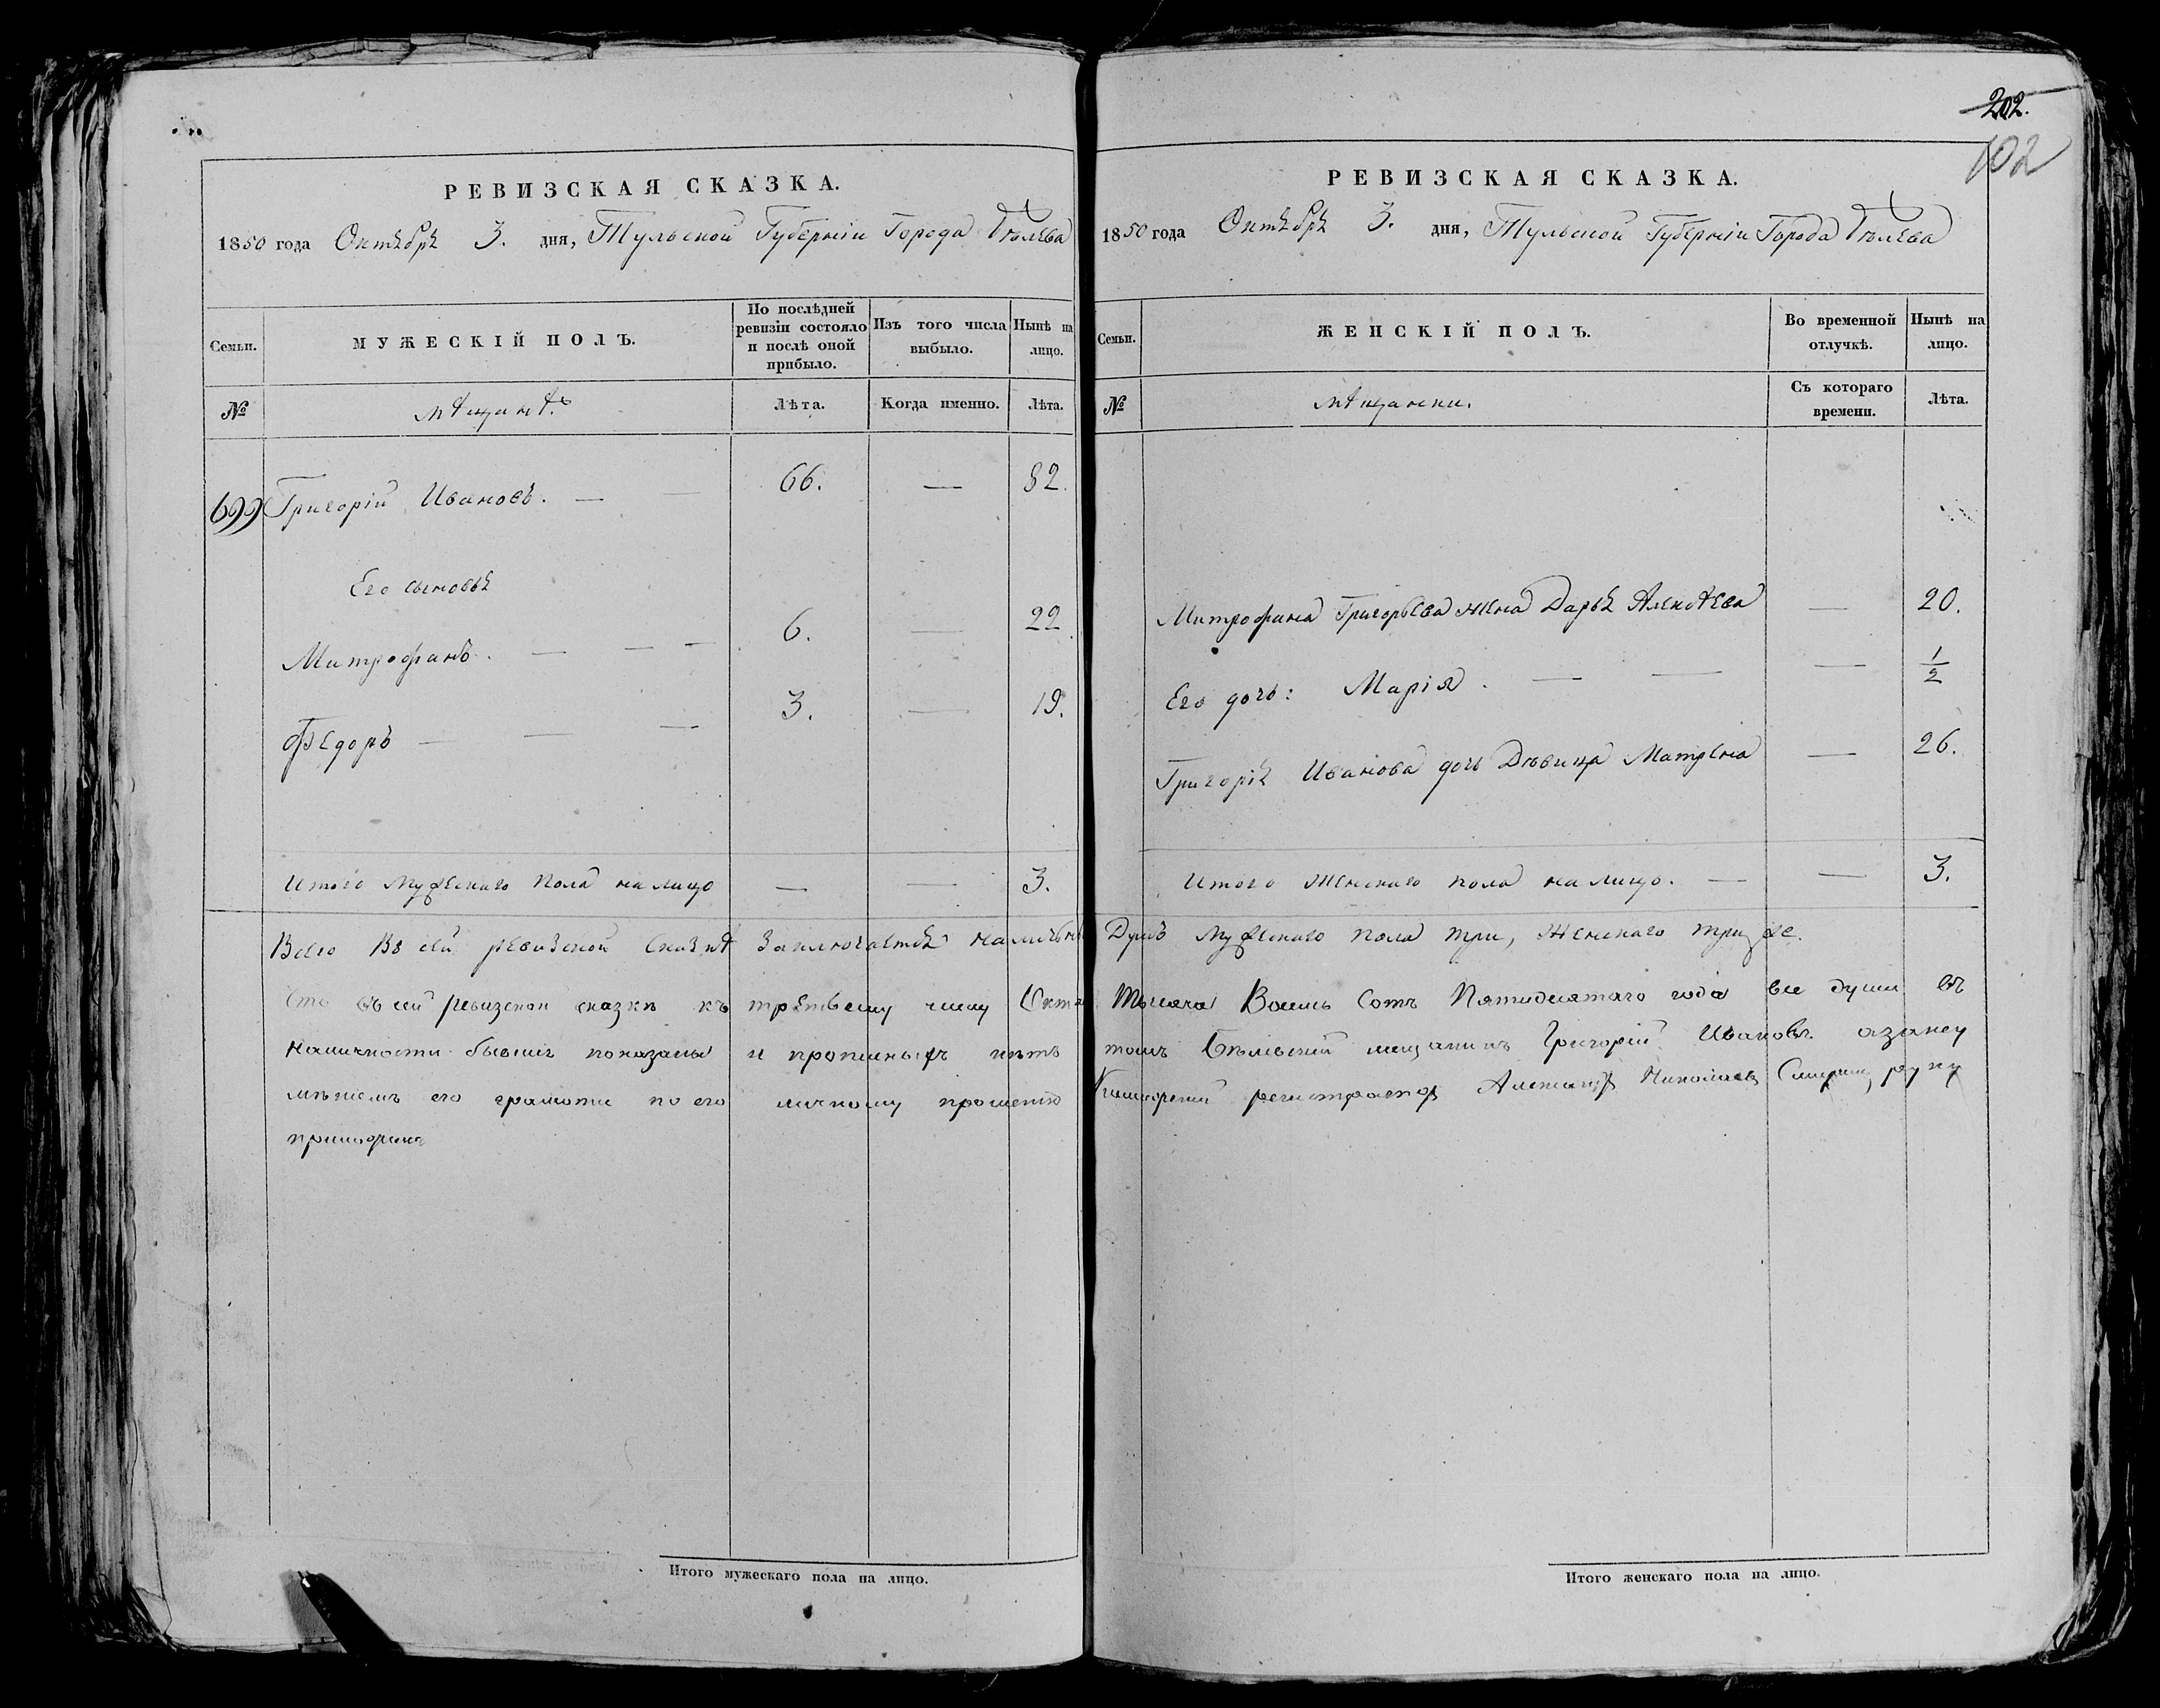 РЕВИЗСКАЯ СКАЗКА.
1850 года Октября 3. дня, Тульской Губернiи Города Бѣлева
Семьи.
МУЖЕСКIЙ ПОЛЪ.
По послѣдней ревизiи состояло и послѣ оной прибыло.
Изъ того числа выбыло.
Нынѣ на лицо.
№
мѣщанѣ.
Лѣта.
Когда именно.
Лѣта.
699 Григорiй Ивановъ. — — 66. — 82.
Его сыновья
Митрофанъ. — — — 6. — 22.
Федоръ — — — 3. — 19.
Итого Мужескаго пола на лицо — — 3.
Всего Въ сей ревизской сказкѣ заключается наличны
Что въ сей ревизской сказки къ третьему числу Октя
наличности бывшiе показаны и прописныхъ нѣтъ
его грамоти по его личному прошенiю
Итого мужескаго пола на лицо.
202.
102
РЕВИЗСКАЯ СКАЗКА.
1850 года Октября 3. дня, Тульской Губернiи Города Бѣлева
Семьи.
ЖЕНСКIЙ ПОЛЪ.
Во временной отлучкѣ.
Нынѣ на лицо.
№
мѣщанки.
Съ котораго времени.
Лѣта.
Митрофана Григорьева жена Дарья Алексѣева — 20.
Его дочь: Марiя. — — — 1/2
Григорiя Иванова дочь Дѣвица Матрена — 26.
Итого Женскаго пола на лицо. — — 3.
Душъ Мужескаго пола три, Женскаго три же.
Тысяча Восемь Сотъ Пятидесятаго года все души въ
томъ Бѣлевскiй мещанинъ Григорiй Ивановъ азанеу
регистраторъ Александръ Николаевъ руку
Итого женскаго пола на лицо.